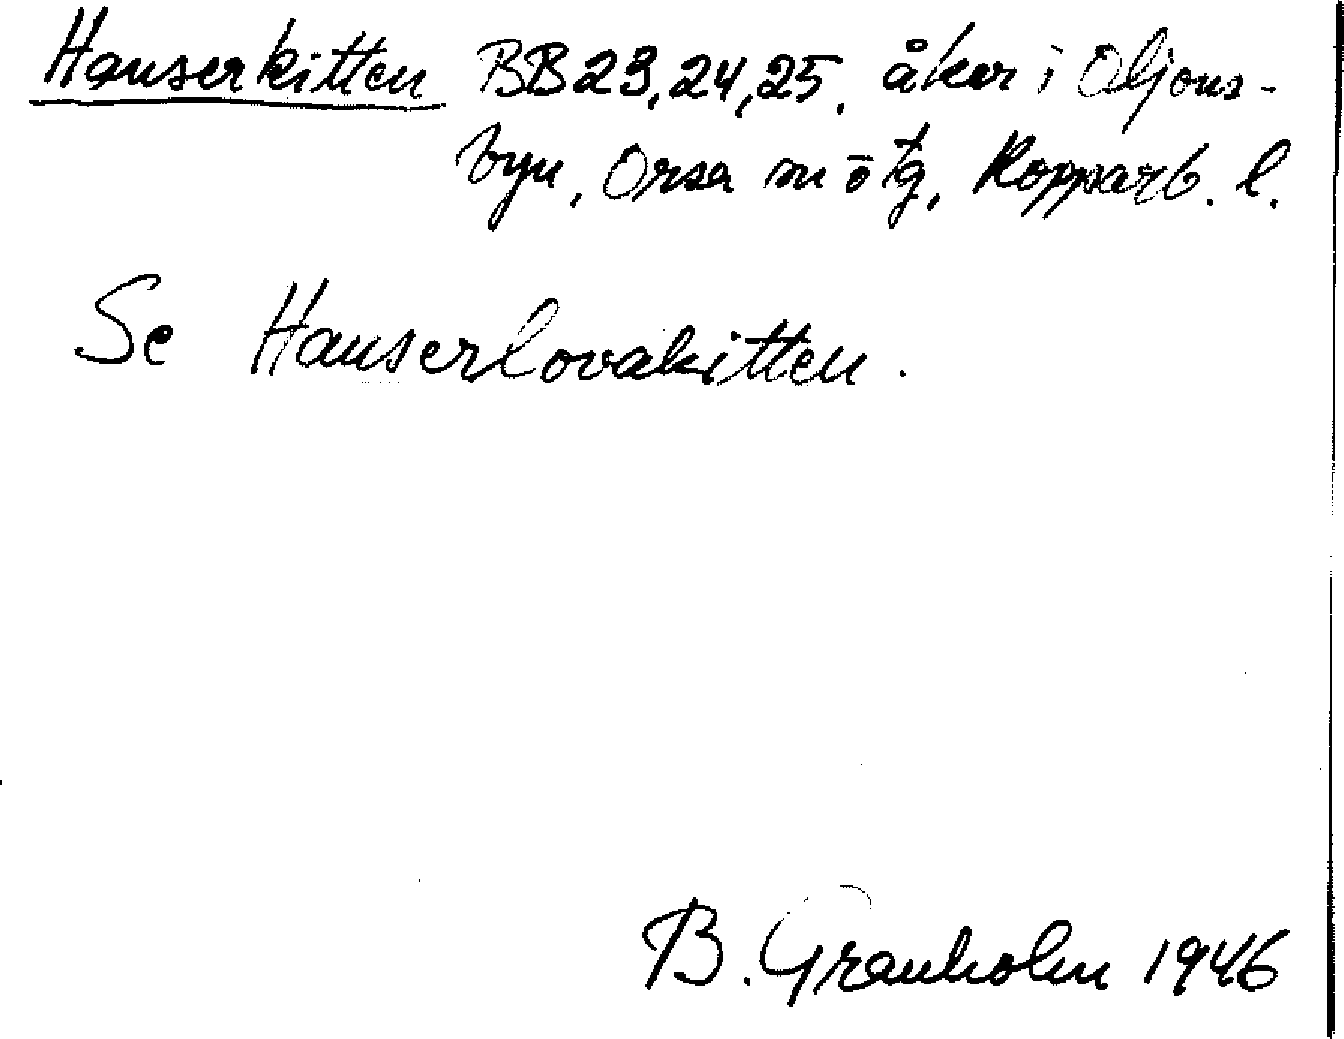 Hanserkitten BB23,24,25. åker i Oljons-
byn, Orsa sn ö tg, Kopparb. l.
Se Hanserlovakitten.
B. Granholm 1946